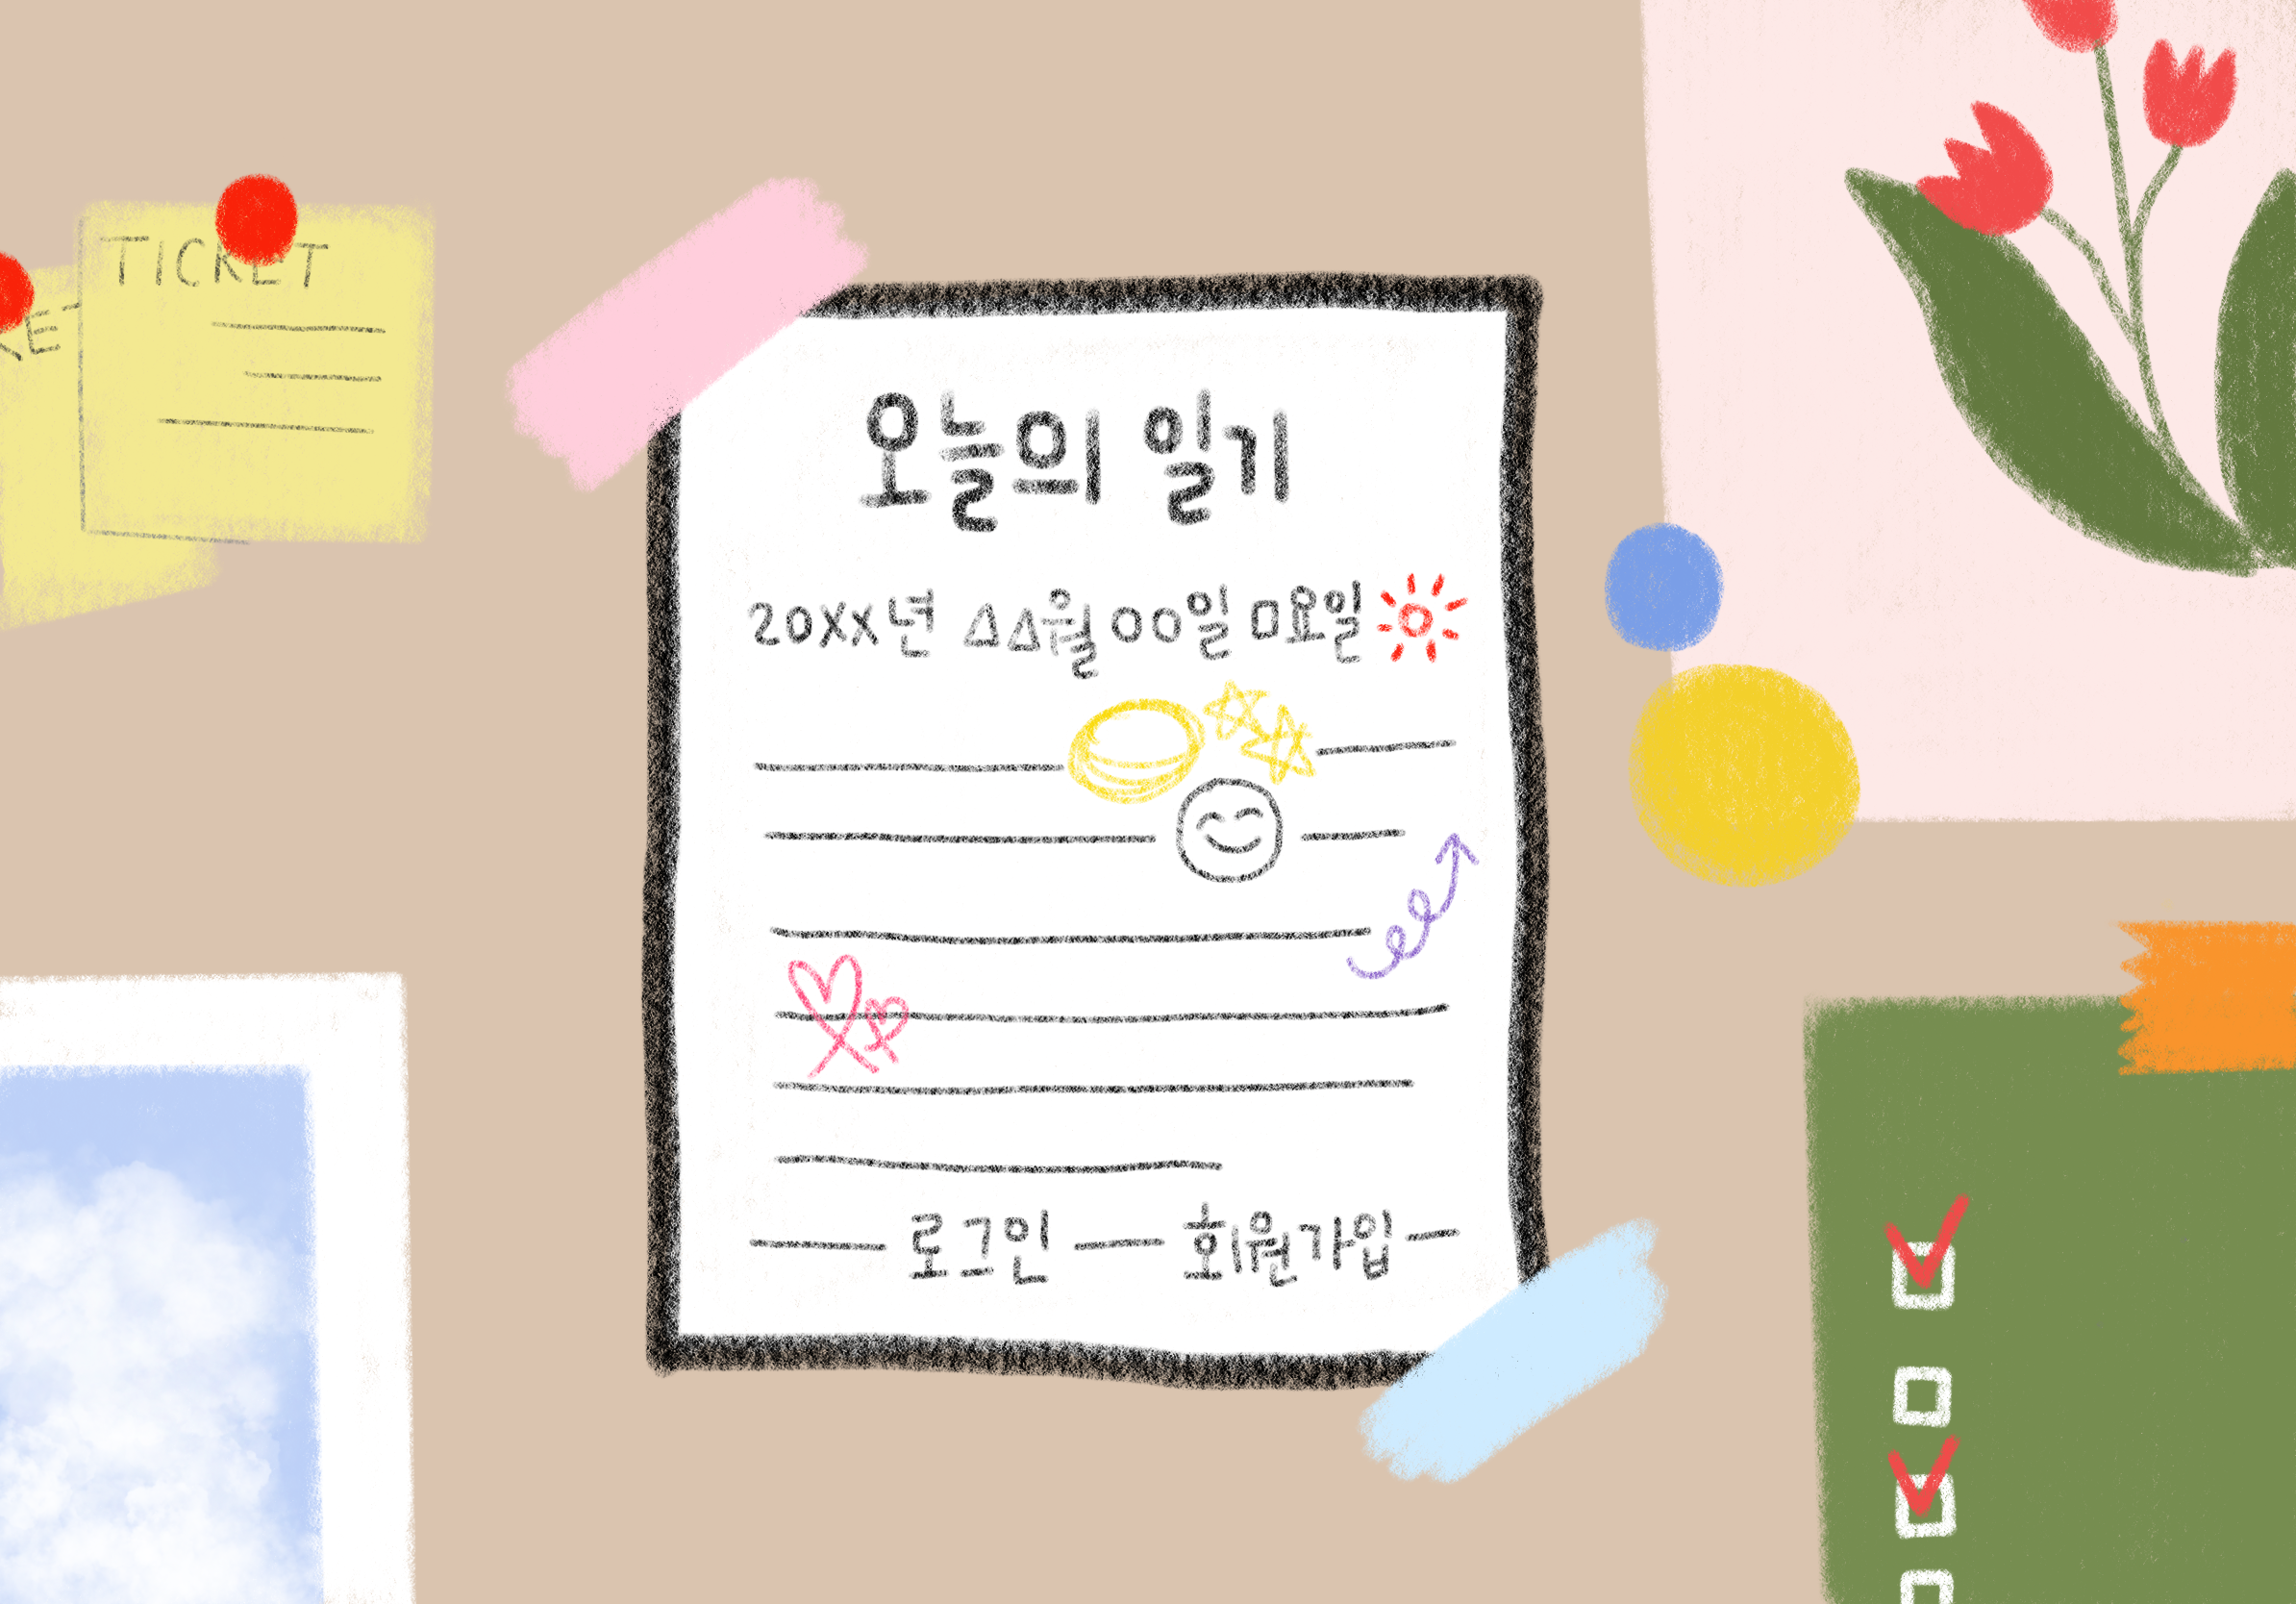 TICKET
오늘의 일기
20XX년 △△월 00일 ㅁ요일
로그인 회원가입